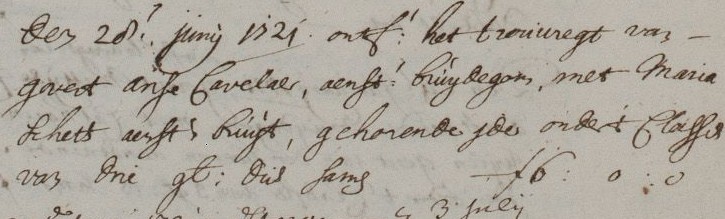 den 28.t junij 1721. ontf.t het trouwregt van –
govert anse Cavelaer, aenst.t bruijdegom, met Maria
Schets aenst.s bruijt, gehorende ider onder 't Classis
van drie gl: dus sams f 6 : 0 : 0
3 julij